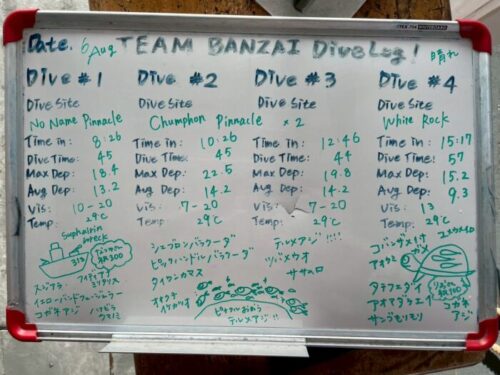 Date. 6 Aug TEAM BANZAI DiveLog! 晴れ
Dive #1
Dive Site
No Name Pinnacle
Time in: 8:26
Dive Time: 45
Max Dep: 18.4
Avg Dep: 13.2
Vis: 10-20
Temp: 29℃
wreck
313
スジアラ
イエローバンドフュージラー
コガネアジ
Dive #2
Dive Site
Chumphon Pinnacle ×2
Time in: 10:26
Dive Time: 45
Max Dep: 22.5
Avg Dep: 14.2
Vis: 7-20
Temp: 29℃
シェブロンバラクーダ
ピックハンドルバラクーダ
タイワンカマス
イケカツオ
テルメアジ!!
Dive #3
Dive Site
Time in: 12:46
Dive Time: 44
Max Dep: 19.8
Avg Dep: 14.2
Vis: 7-20
Temp: 29℃
テルメアジ!!!!
ツバメウオ
ササムロ
Dive #4
Dive Site
White Rock
Time in: 15:17
Dive Time: 57
Max Dep: 15.2
Avg Dep: 9.3
Vis: 13
Temp: 29℃
コバンザメイナ
アオウミ
タテフエダイ
アオマダラエイ
サンゴモリモリ
コガネ
アジ